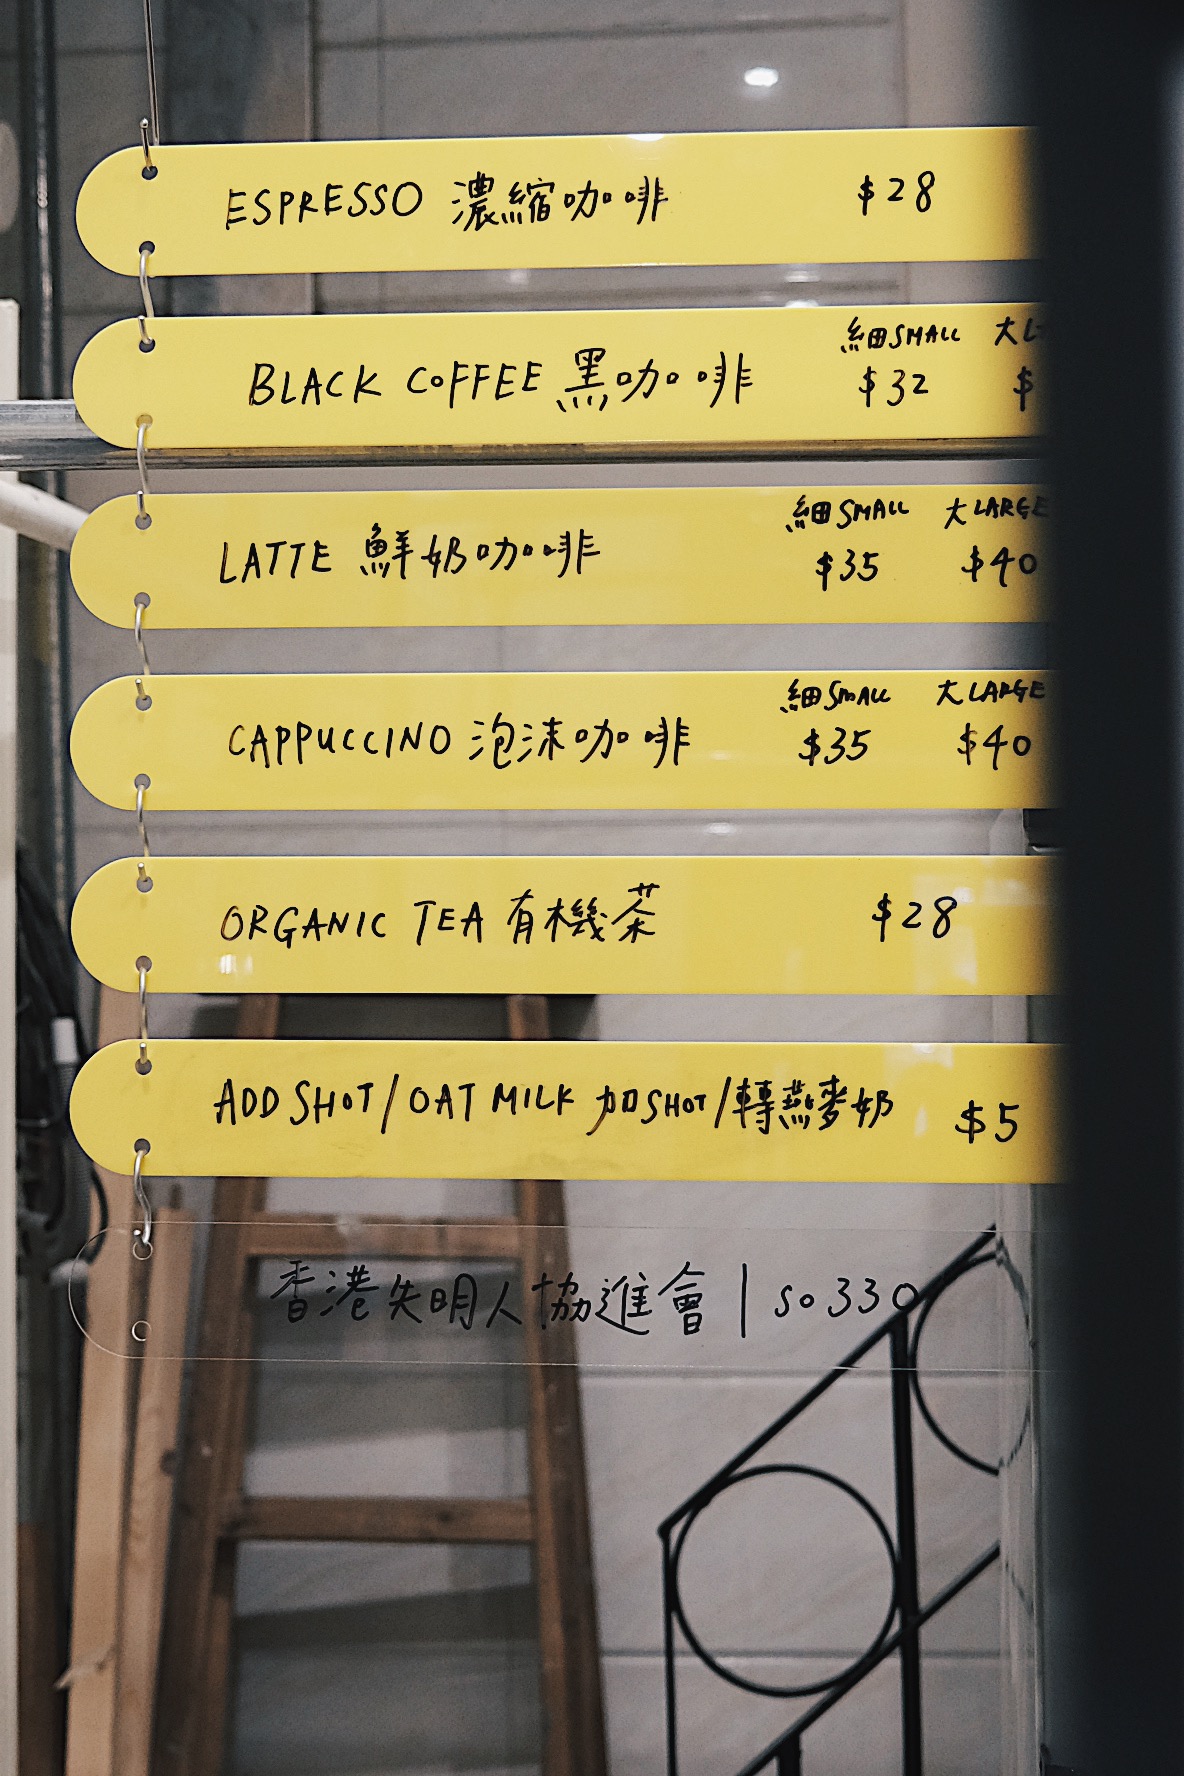 ESPRESSO 濃縮咖啡 $28
細SMALL 大L
BLACK COFFEE 黑咖啡 $32 $
細SMALL 大LARGE
LATTE 鮮奶咖啡 $35 $40
細SMALL 大LARGE
CAPPUCCINO 泡沫咖啡 $35 $40
ORGANIC TEA 有機茶 $28
ADD SHOT/OAT MILK 加SHOT/轉燕麥奶 $5
香港失明人協進會 | so330